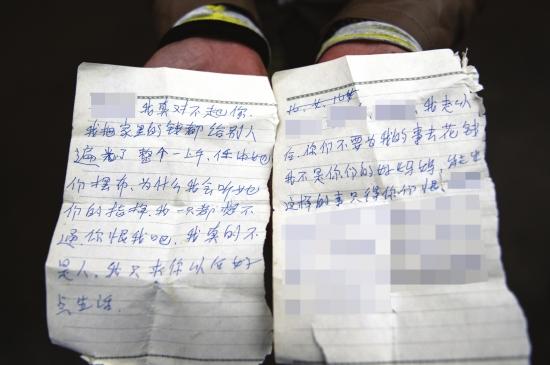 我真对不起你.
我把家里的钱都给别人
骗光了整个一上午,任由他
们摆布,为什么我会听他
们的指挥.我一只都想不
通你恨我吧,我真的不
是人,我只求你以后好
点生活.
我走以
后,你们不要为我的事去花钱
我不是你们的好妈妈,发生
这样的事只得你们恨.